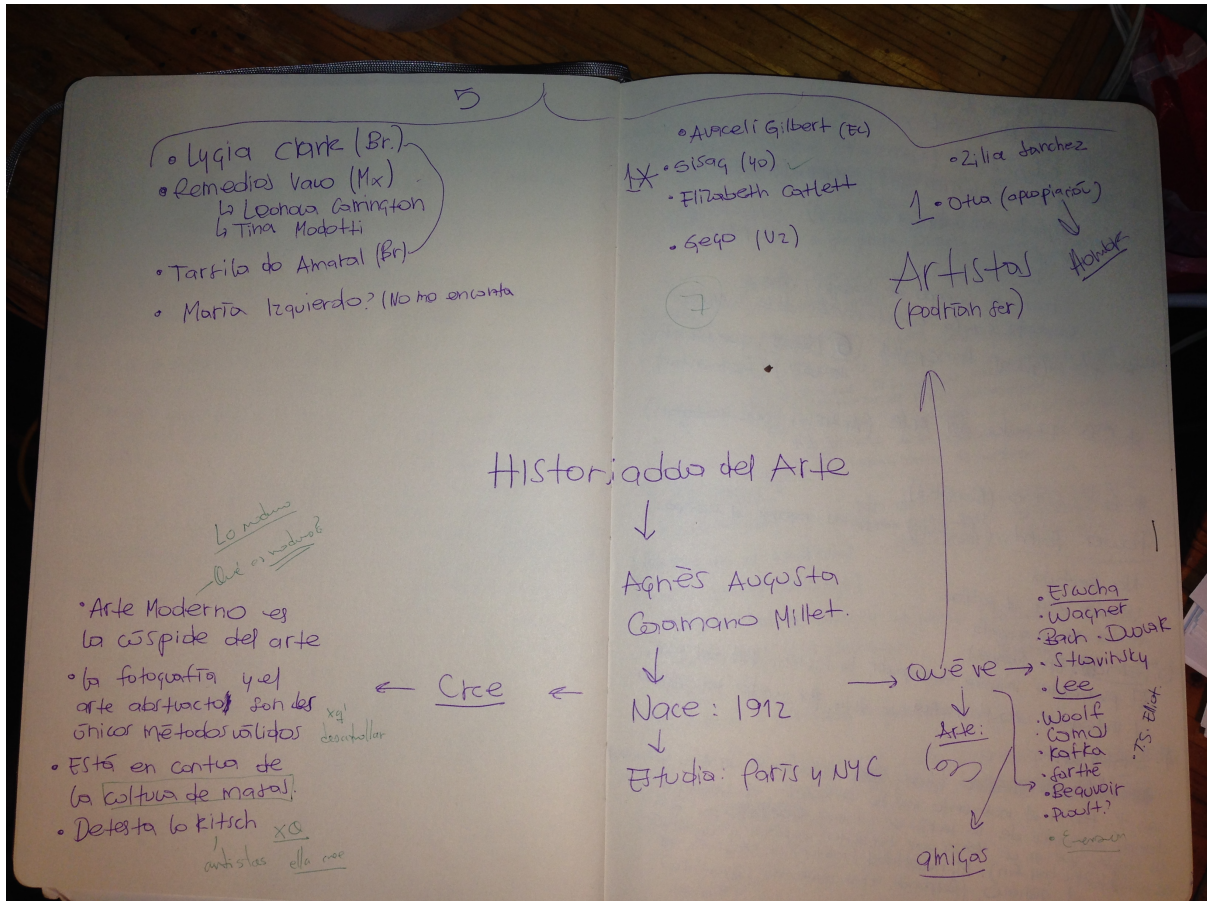 5
• Lygia Clark (Br.)
• Remedios Varo (Mx)
↳ Leonora Carrington
↳ Tina Modotti
• Tarsila do Amaral (Br)
• María Izquierdo? (No me encanta
• Araceli Gilbert (Ec)
1X • Sisaq (40) ✓
• Elizabeth Catlett
• Gego (Vz)
7
• Zilia Sanchez
1 • Otra (apropiación)
Hombre
Artistas
(podrían ser)
Historiadora del Arte
Agnès Augusta
Millet.
Nace: 1912
Estudia: París y NYC
Cree
Lo moderno
Qué es moderno?
• Arte Moderno es
la cúspide del arte
• La fotografía y el
arte abstracto son los
únicos métodos válidos
xq'
desarrollar
• Está en contra de
la cultura de masas.
• Detesta lo kitsch
xQ
artistas ella
Qué ve
Arte:
amigos
• Escucha
• Wagner
• Bach • Dvorak
• Stravinsky
• Lee
• Woolf
• Camus
• Kafka
• Sartre
• Beauvoir
• Proust?
• T.S. Elliot.